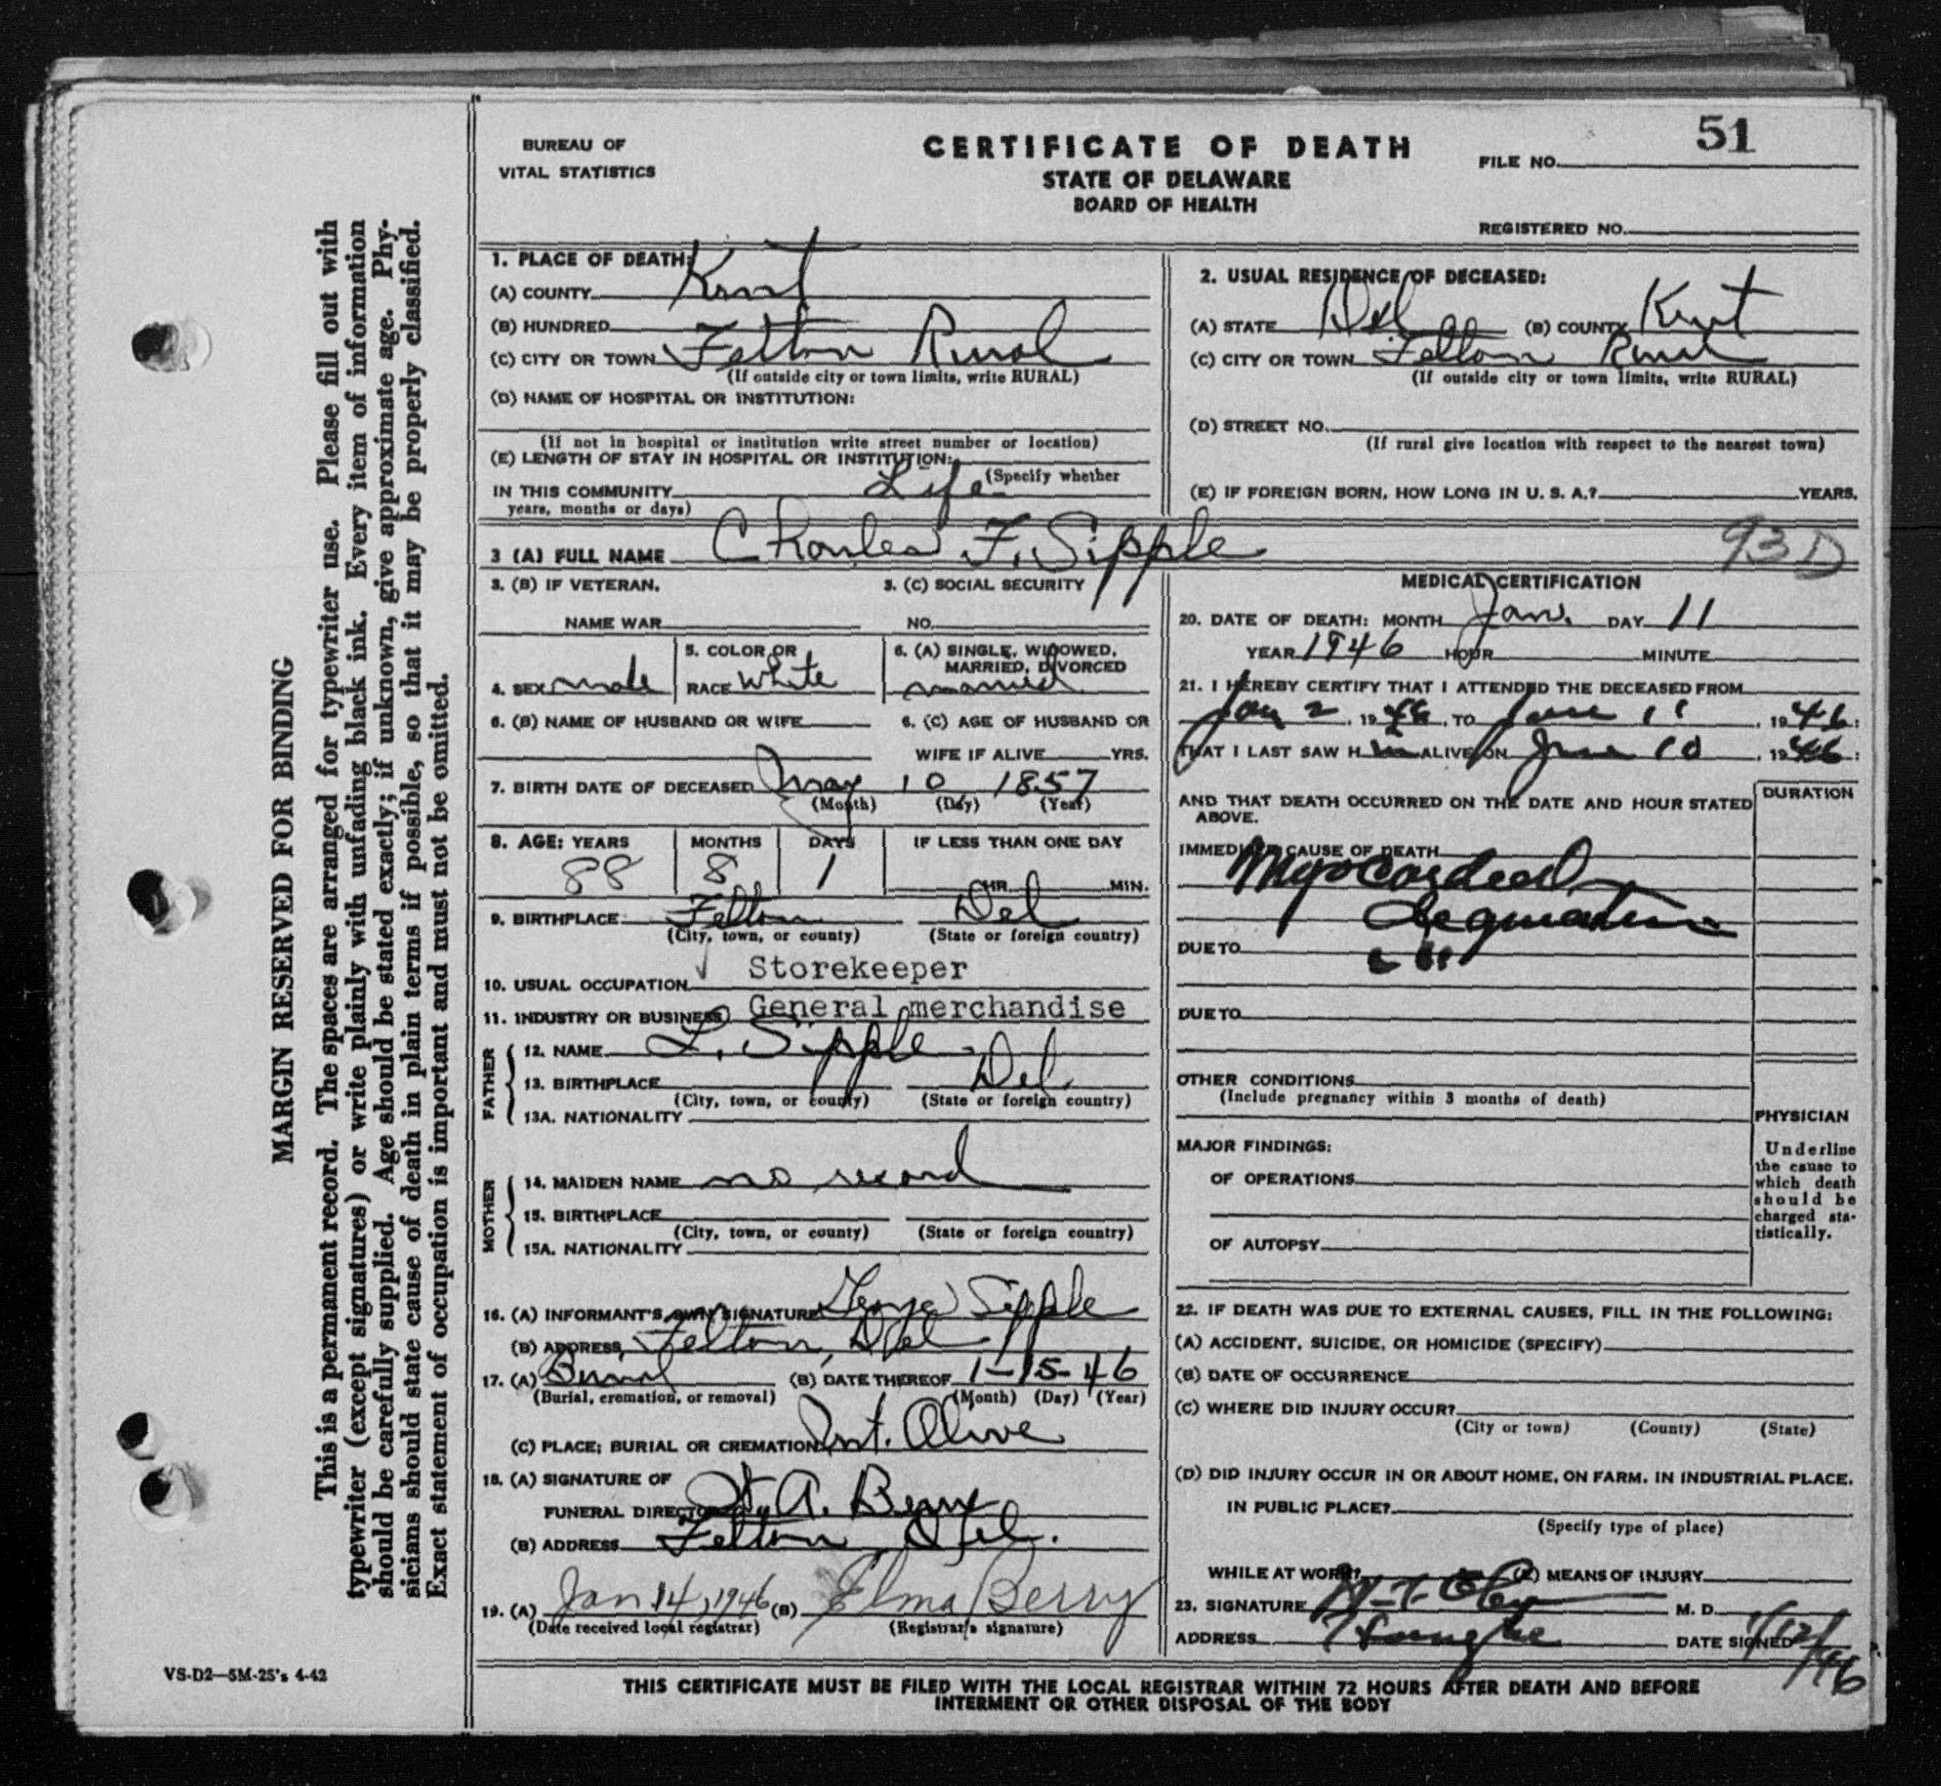 BUREAU OF
VITAL STATISTICS
CERTIFICATE OF DEATH
STATE OF DELAWARE
BOARD OF HEALTH
FILE NO. 51
REGISTERED NO.
MARGIN RESERVED FOR BINDING
This is a permanent record. The spaces are arranged for typewriter use. Please fill out with
typewriter (except signatures) or write plainly with unfading black ink. Every item of information
should be carefully supplied. Age should be stated exactly; if unknown, give approximate age. Phy-
sicians should state cause of death in plain terms if possible, so that it may be properly classified.
Exact statement of occupation is important and must not be omitted.
1. PLACE OF DEATH:
(A) COUNTY Kent
(B) HUNDRED
(C) CITY OR TOWN Felton Rural
(If outside city or town limits, write RURAL)
(D) NAME OF HOSPITAL OR INSTITUTION:
(If not in hospital or institution write street number or location)
(E) LENGTH OF STAY IN HOSPITAL OR INSTITUTION:
(Specify whether
IN THIS COMMUNITY Life
years, months or days)
2. USUAL RESIDENCE OF DECEASED:
(A) STATE Del (B) COUNTY Kent
(C) CITY OR TOWN Felton Rural
(If outside city or town limits, write RURAL)
(D) STREET NO.
(If rural give location with respect to the nearest town)
(E) IF FOREIGN BORN, HOW LONG IN U. S. A.? YEARS.
3 (A) FULL NAME Charles F. Sipple
93D
3. (B) IF VETERAN, 3. (C) SOCIAL SECURITY
NAME WAR NO.
4. SEX male 5. COLOR OR RACE white 6. (A) SINGLE, WIDOWED, MARRIED, DIVORCED married
6. (B) NAME OF HUSBAND OR WIFE 6. (C) AGE OF HUSBAND OR
WIFE IF ALIVE YRS.
7. BIRTH DATE OF DECEASED May 10 1857
(Month) (Day) (Year)
8. AGE: YEARS MONTHS DAYS IF LESS THAN ONE DAY
88 8 1 HR. MIN.
9. BIRTHPLACE Felton Del
(City, town, or county) (State or foreign country)
10. USUAL OCCUPATION Storekeeper
11. INDUSTRY OR BUSINESS General merchandise
FATHER
12. NAME L. Sipple
13. BIRTHPLACE Del
(City, town, or county) (State or foreign country)
13A. NATIONALITY
MOTHER
14. MAIDEN NAME no record
15. BIRTHPLACE
(City, town, or county) (State or foreign country)
15A. NATIONALITY
16. (A) INFORMANT'S OWN SIGNATURE Sipple
(B) ADDRESS Felton, Del
17. (A) Burial (B) DATE THEREOF 1-15-46
(Burial, cremation, or removal) (Month) (Day) (Year)
(C) PLACE; BURIAL OR CREMATION Mt. Olive
18. (A) SIGNATURE OF
FUNERAL DIRECTOR A. Berry
(B) ADDRESS Felton, Del.
19. (A) Jan 14, 1946 (B) Elma Berry
(Date received local registrar) (Registrar's signature)
MEDICAL CERTIFICATION
20. DATE OF DEATH: MONTH Jan. DAY 11
YEAR 1946 HOUR MINUTE
21. I HEREBY CERTIFY THAT I ATTENDED THE DECEASED FROM
Jan 2, 1946, TO 11, 1946;
THAT I LAST SAW H im ALIVE ON 10, 1946;
AND THAT DEATH OCCURRED ON THE DATE AND HOUR STATED
ABOVE.
DURATION
IMMEDIATE CAUSE OF DEATH
Myocardial
degeneration
DUE TO
DUE TO
OTHER CONDITIONS
(Include pregnancy within 3 months of death)
MAJOR FINDINGS:
OF OPERATIONS
OF AUTOPSY
PHYSICIAN
Underline
the cause to
which death
should be
charged sta-
tistically.
22. IF DEATH WAS DUE TO EXTERNAL CAUSES, FILL IN THE FOLLOWING:
(A) ACCIDENT, SUICIDE, OR HOMICIDE (SPECIFY)
(B) DATE OF OCCURRENCE
(C) WHERE DID INJURY OCCUR?
(City or town) (County) (State)
(D) DID INJURY OCCUR IN OR ABOUT HOME, ON FARM, IN INDUSTRIAL PLACE,
IN PUBLIC PLACE?
(Specify type of place)
WHILE AT WORK? (E) MEANS OF INJURY
23. SIGNATURE M. D.
ADDRESS DATE SIGNED 1/12/46
VS-D2—5M-25's 4-42
THIS CERTIFICATE MUST BE FILED WITH THE LOCAL REGISTRAR WITHIN 72 HOURS AFTER DEATH AND BEFORE
INTERMENT OR OTHER DISPOSAL OF THE BODY